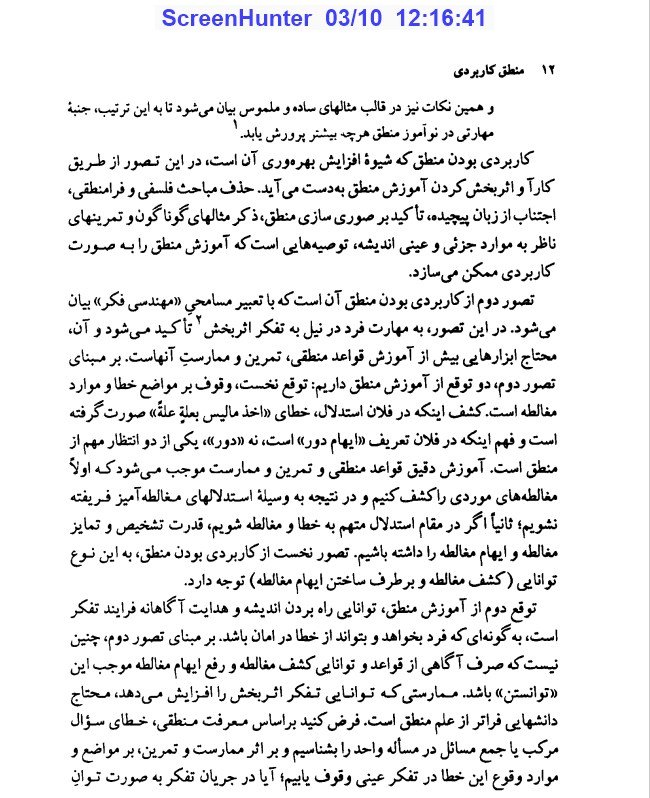 ScreenHunter 03/10 12:16:41
۱۲ منطق کاربردی
و همین نکات نیز در قالب مثالهای ساده و ملموس بیان می‌شود تا به این ترتیب، جنبهٔ
مهارتی در نوآموز منطق هرچه بیشتر پرورش یابد.۱
کاربردی بودن منطق که شیوهٔ افزایش بهره‌وری آن است، در این تصور از طریق
کارآ و اثربخش کردن آموزش منطق به‌دست می‌آید. حذف مباحث فلسفی و فرامنطقی،
اجتناب از زبان پیچیده، تأکید بر صوری سازی منطق، ذکر مثالهای گوناگون و تمرینهای
ناظر به موارد جزئی و عینی اندیشه، توصیه‌هایی است که آموزش منطق را به صورت
کاربردی ممکن می‌سازد.
تصور دوم از کاربردی بودن منطق آن است که با تعبیر مسامحیِ «مهندسی فکر» بیان
می‌شود. در این تصور، به مهارت فرد در نیل به تفکر اثربخش۲ تأکید می‌شود و آن،
محتاج ابزارهایی بیش از آموزش قواعد منطقی، تمرین و ممارستِ آنهاست. بر مبنای
تصور دوم، دو توقع از آموزش منطق داریم: توقع نخست، وقوف بر مواضع خطا و موارد
مغالطه است. کشف اینکه در فلان استدلال، خطای «اخذ مالیس بعلةٍ علةً» صورت گرفته
است و فهم اینکه در فلان تعریف «ایهام دور» است، نه «دور»، یکی از دو انتظار مهم از
منطق است. آموزش دقیق قواعد منطقی و تمرین و ممارست موجب می‌شود که اولاً
مغالطه‌های موردی را کشف کنیم و در نتیجه به وسیلهٔ استدلالهای مغالطه‌آمیز فریفته
نشویم؛ ثانیاً اگر در مقام استدلال متهم به خطا و مغالطه شویم، قدرت تشخیص و تمایز
مغالطه و ایهام مغالطه را داشته باشیم. تصور نخست از کاربردی بودن منطق، به این نوع
توانایی (کشف مغالطه و برطرف ساختن ایهام مغالطه) توجه دارد.
توقع دوم از آموزش منطق، توانایی راه بردن اندیشه و هدایت آگاهانه فرایند تفکر
است، به‌گونه‌ای که فرد بخواهد و بتواند از خطا در امان باشد. بر مبنای تصور دوم، چنین
نیست که صرف آگاهی از قواعد و توانایی کشف مغالطه و رفع ایهام مغالطه موجب این
«توانستن» باشد. ممارستی که توانایی تفکر اثربخش را افزایش می‌دهد، محتاج
دانشهایی فراتر از علم منطق است. فرض کنید براساس معرفت منطقی، خطای سؤال
مرکب یا جمع مسائل در مسأله واحد را بشناسیم و بر اثر ممارست و تمرین، بر مواضع و
موارد وقوع این خطا در تفکر عینی وقوف یابیم؛ آیا در جریان تفکر به صورت توانِ